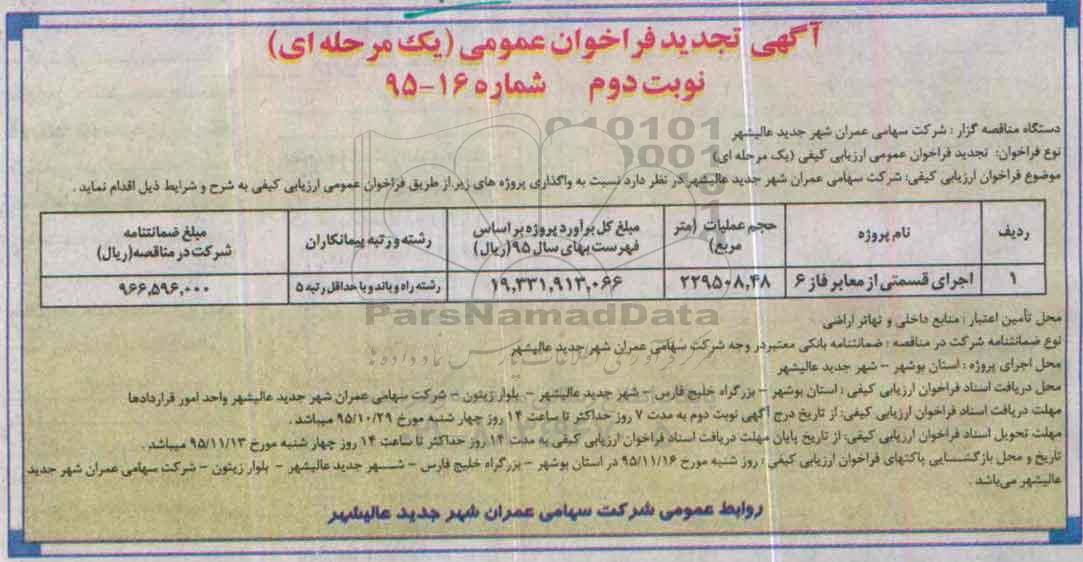 آگهی تجدید فراخوان عمومی (یک مرحله ای)
نوبت دوم شماره ۱۶-۹۵
دستگاه مناقصه گزار : شرکت سهامی عمران شهر جدید عالیشهر
نوع فراخوان: تجدید فراخوان عمومی ارزیابی کیفی (یک مرحله ای)
موضوع فراخوان ارزیابی کیفی: شرکت سهامی عمران شهر جدید عالیشهر در نظر دارد نسبت به واگذاری پروژه های زیر از طریق فراخوان عمومی ارزیابی کیفی به شرح و شرایط ذیل اقدام نماید .
ردیف | نام پروژه | حجم عملیات (متر مربع) | مبلغ کل برآورد پروژه بر اساس فهرست بهای سال ۹۵ (ریال) | رشته و رتبه پیمانکاران | مبلغ ضمانتنامه شرکت در مناقصه (ریال)
۱ | اجرای قسمتی از معابر فاز ۶ | ۲۲۹۵۰۸,۴۸ | ۱۹,۳۳۱,۹۱۳,۰۶۶ | رشته راه و باند و با حداقل رتبه ۵ | ۹۶۶,۵۹۶,۰۰۰
ParsNamadData
محل تأمین اعتبار : منابع داخلی و تهاتر اراضی
نوع ضمانتنامه شرکت در مناقصه : ضمانتنامه بانکی معتبر در وجه شرکت سهامی عمران شهر جدید عالیشهر
محل اجرای پروژه : استان بوشهر – شهر جدید عالیشهر
محل دریافت اسناد فراخوان ارزیابی کیفی : استان بوشهر – بزرگراه خلیج فارس – شهر جدید عالیشهر – بلوار زیتون – شرکت سهامی عمران شهر جدید عالیشهر واحد امور قراردادها
مهلت دریافت اسناد فراخوان ارزیابی کیفی: از تاریخ درج آگهی نوبت دوم به مدت ۷ روز حداکثر تا ساعت ۱۴ روز چهار شنبه مورخ ۹۵/۱۰/۲۹ میباشد .
مهلت تحویل اسناد فراخوان ارزیابی کیفی: از تاریخ پایان مهلت دریافت اسناد فراخوان ارزیابی کیفی به مدت ۱۴ روز حداکثر تا ساعت ۱۴ روز چهار شنبه مورخ ۹۵/۱۱/۱۳ میباشد .
تاریخ و محل بازگشسایی پاکتهای فراخوان ارزیابی کیفی : روز شنبه مورخ ۹۵/۱۱/۱۶ در استان بوشهر – بزرگراه خلیج فارس – شهر جدید عالیشهر – بلوار زیتون – شرکت سهامی عمران شهر جدید
عالیشهر می‌باشد .
روابط عمومی شرکت سهامی عمران شهر جدید عالیشهر